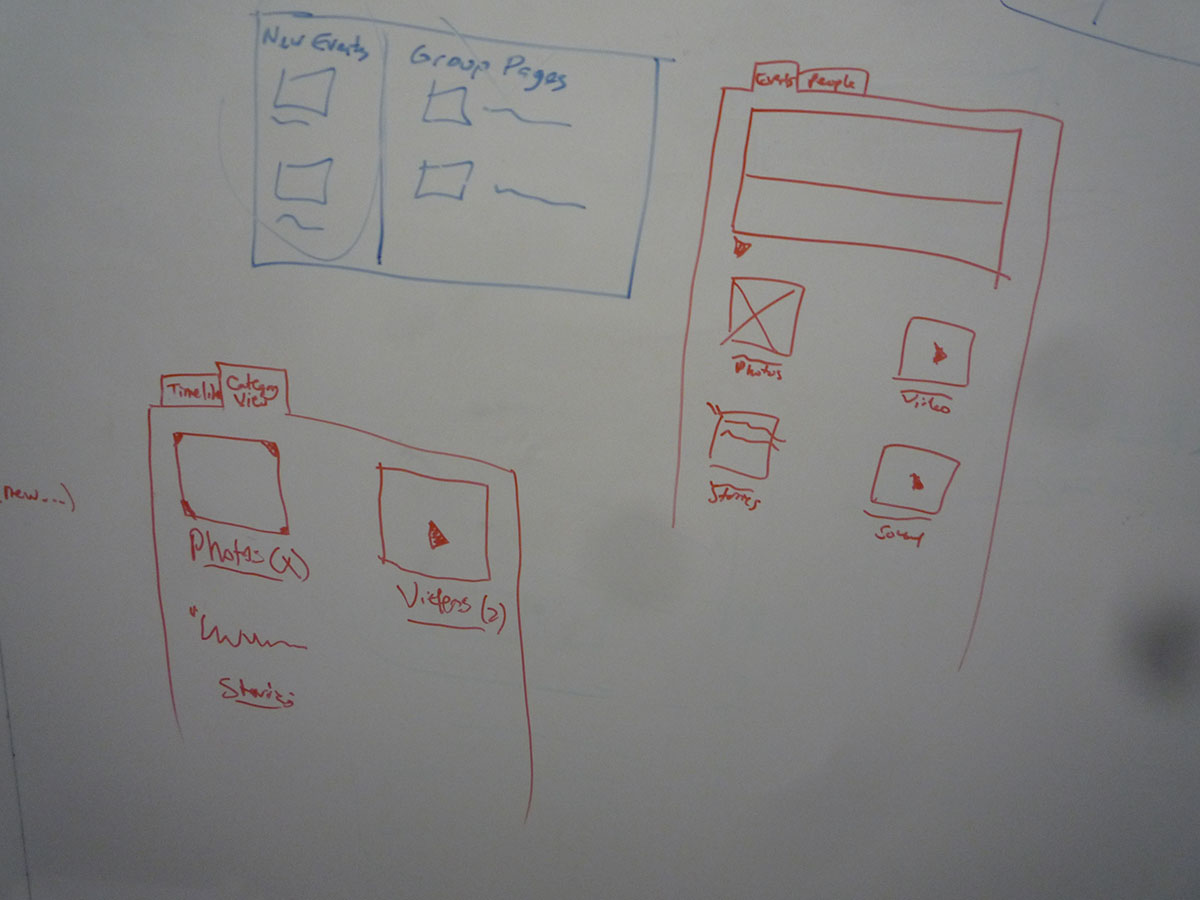 New Events
Group Pages
Events
People
Photos
Video
Stories
Sound
Timeline
Category
View
Photos (x)
Videos (2)
Stories
new...)